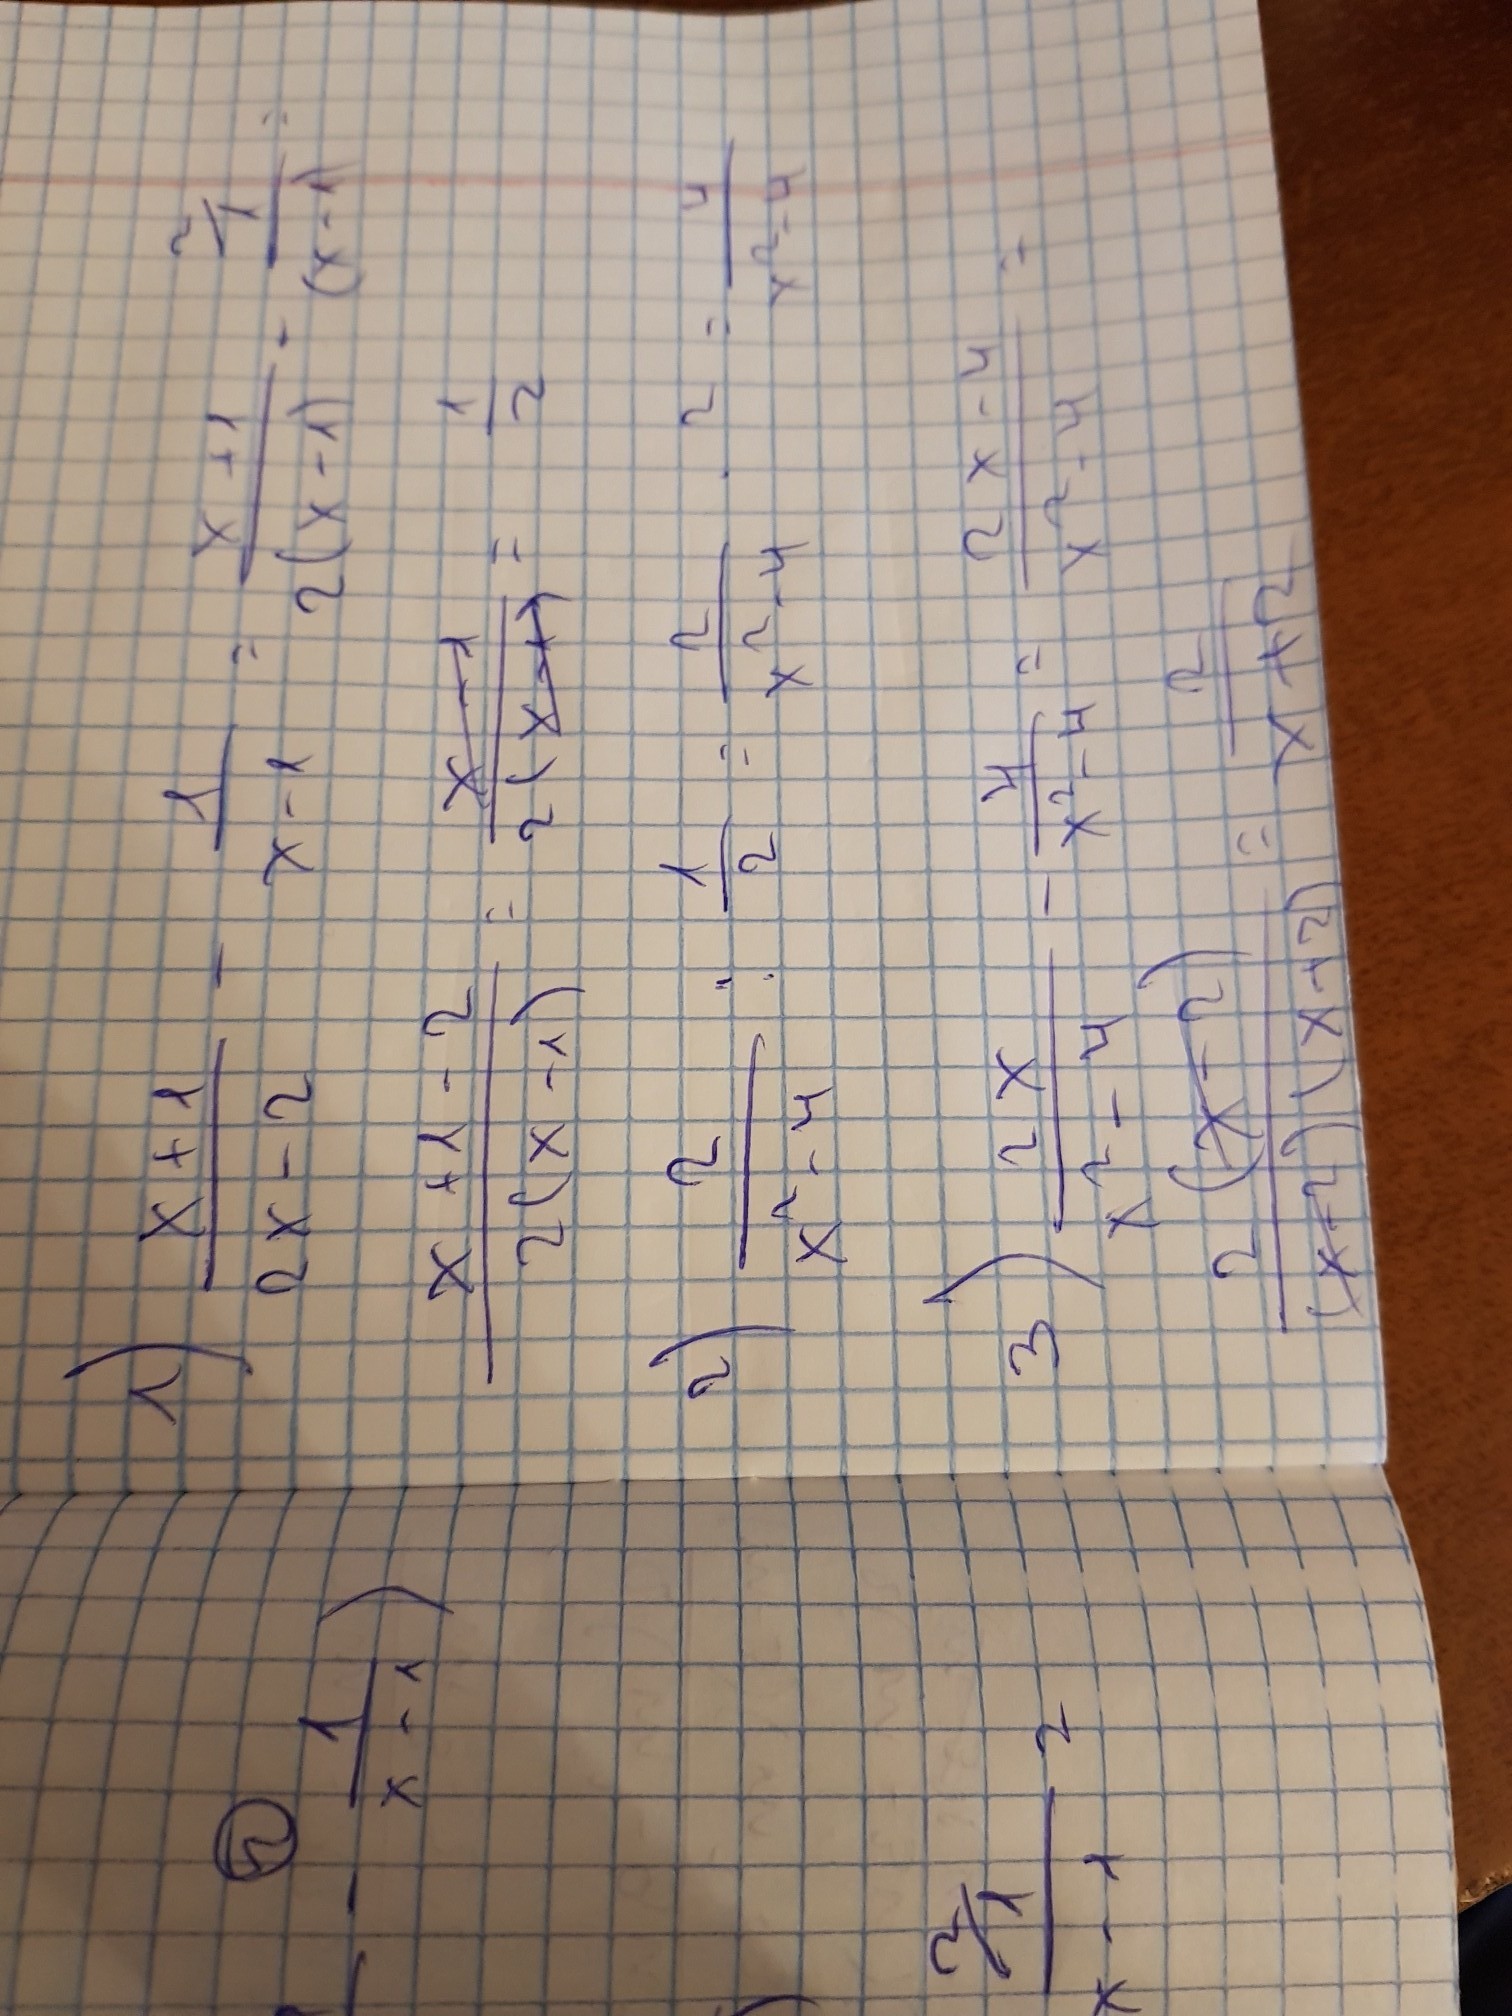 1) (x+1)/(2x-2) - 1/(x-1) = (x+1)/(2(x-1)) - 2/1/(x-1) =
(x+1-2)/(2(x-1)) = (x-1)/(2(x-1)) = 1/2
2) 2/(x²-4) : 1/2 = 2/(x²-4) · 2 = 4/(x²-4)
3) 2x/(x²-4) - 4/(x²-4) = (2x-4)/(x²-4) =
2(x-2)/((x-2)(x+2)) = 2/(x+2)
- 1/(x-1) )
2/1/(x-1) 2